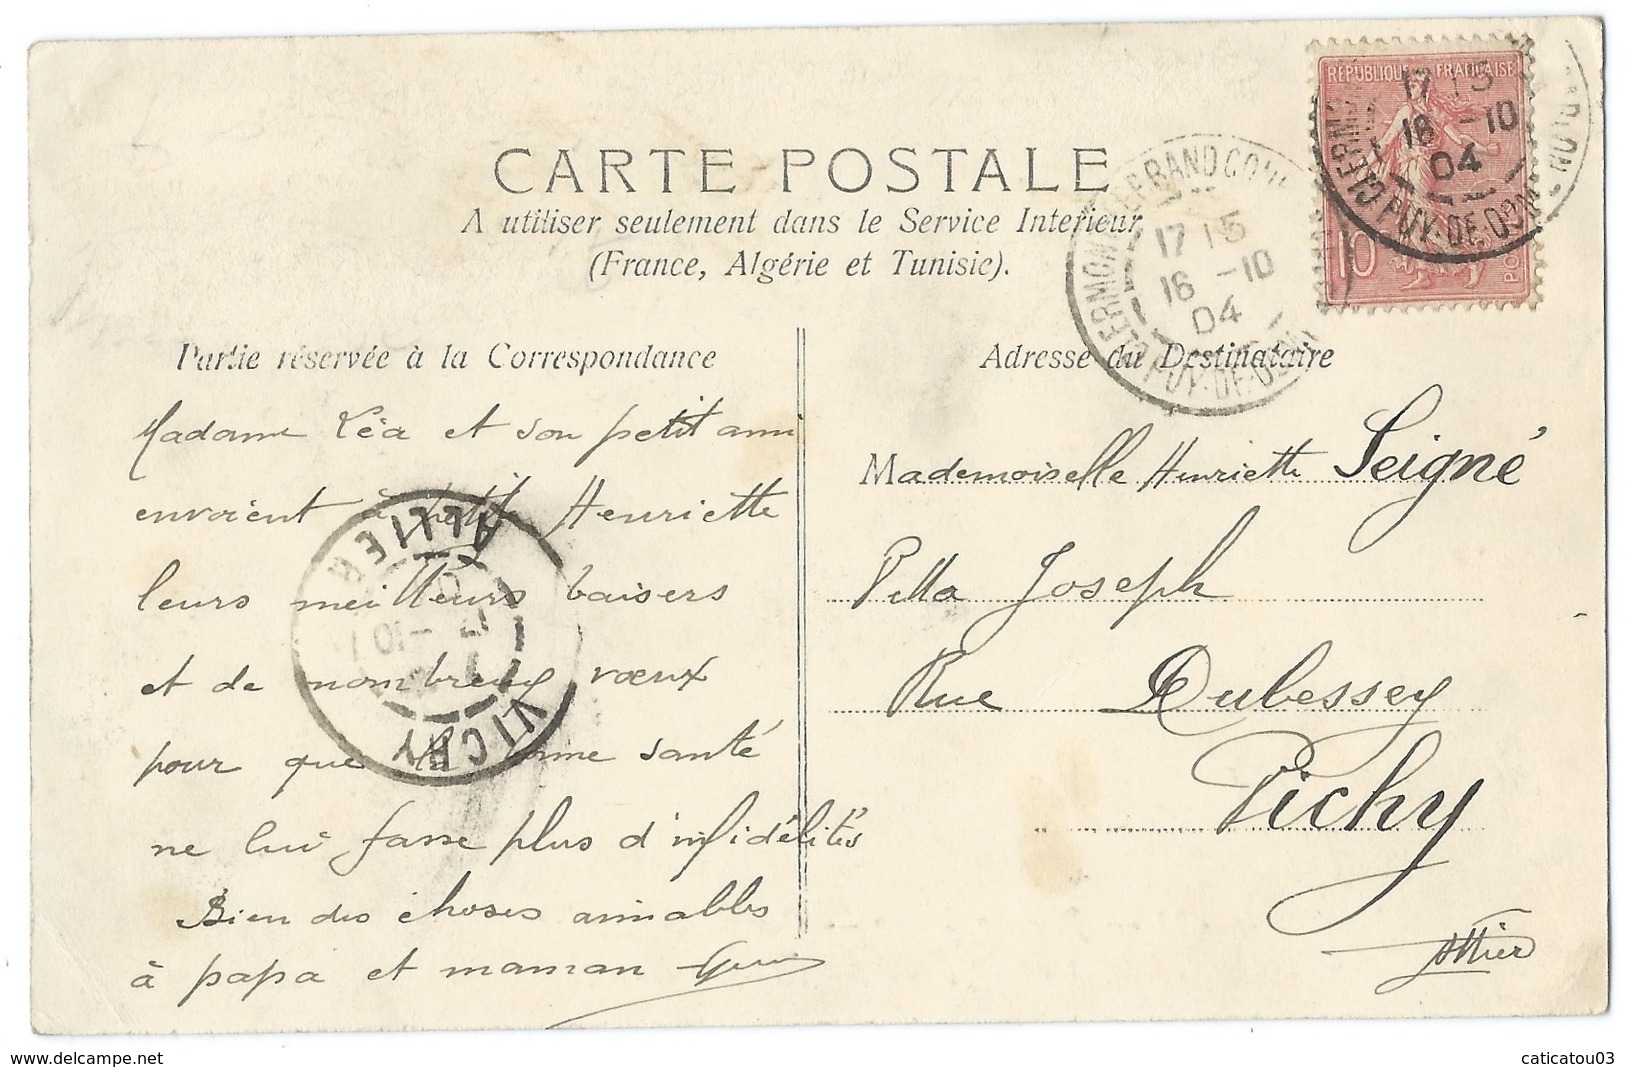 CARTE POSTALE
A utiliser seulement dans le Service Interieur
(France, Algérie et Tunisie).
RÉPUBLIQUE FRANÇAISE
10
17 15
16 -10
04
PUY-DE-DOME
CLERMONT-FERRAND
17 15
16 -10
04
PUY-DE-DOME
Partie réservée à la Correspondance
Madame Léa et son petit ami
envoient à petite Henriette
leurs meilleurs baisers
et de nombreux vœux
pour que la bonne santé
ne lui fasse plus d'infidélités
Bien des choses aimables
à papa et maman
VICHY
ALLIER
17 -10
Adresse du Destinataire
Mademoiselle Henriette Seigné
Villa Joseph
Rue Dubessey
Vichy
Allier
delcampe.net
caticatou03